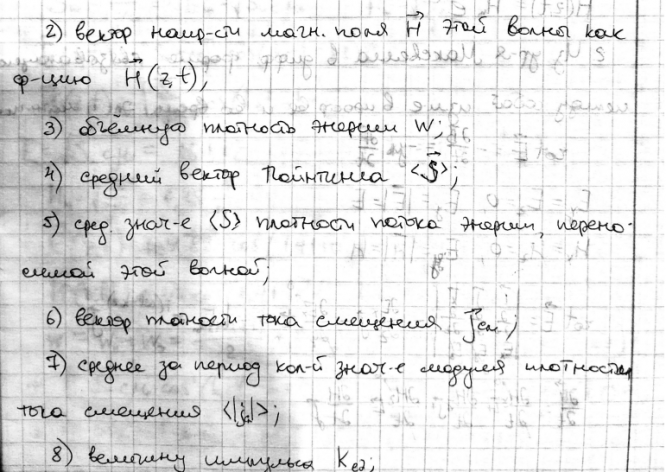 2) вектор напр-сти магн. поля H⃗ этой волны как
ф-цию H⃗(z,t);
3) объёмную плотность энергии w;
4) средний вектор Пойнтинга <S⃗>;
5) сред. знач-е <S> плотности потока энергии, перено-
симой этой волной;
6) вектор плотности тока смещения j⃗см;
7) среднее за период кол-й знач-е модуля плотности
тока смещения <|jсм|>;
8) величину импульса Kед;